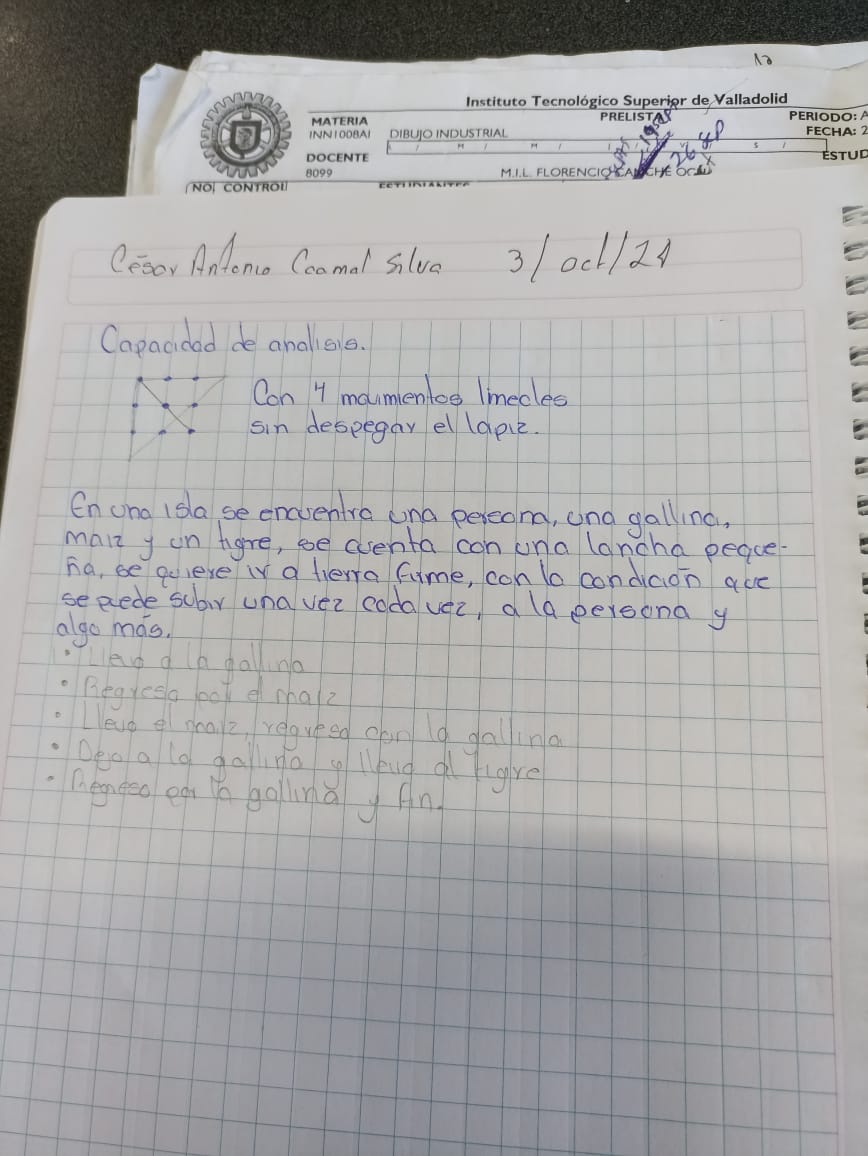 Instituto Tecnológico Superior de Valladolid
MATERIA PRELISTA PERIODO: A
INN1008AI DIBUJO INDUSTRIAL FECHA: 2
DOCENTE ESTUD
8099 M.I.L. FLORENCIO
NO. CONTROL
César Antonio Coamal Silva 3/oct/24
Capacidad de analisis.
Con 4 movimientos lineales
sin despegar el lapiz.
En una isla se encuentra una persona, una gallina,
maiz y un tigre, se cuenta con una lancha peque-
ña, se quiere ir a tierra firme, con la condición que
se puede subir una vez cada vez, a la persona y
algo más.
• Llevo a la gallina
• Regreso por el maiz
• Llevo el maiz, regreso con la gallina
• Dejo a la gallina y llevo al tigre
• Regreso por la gallina y fin.